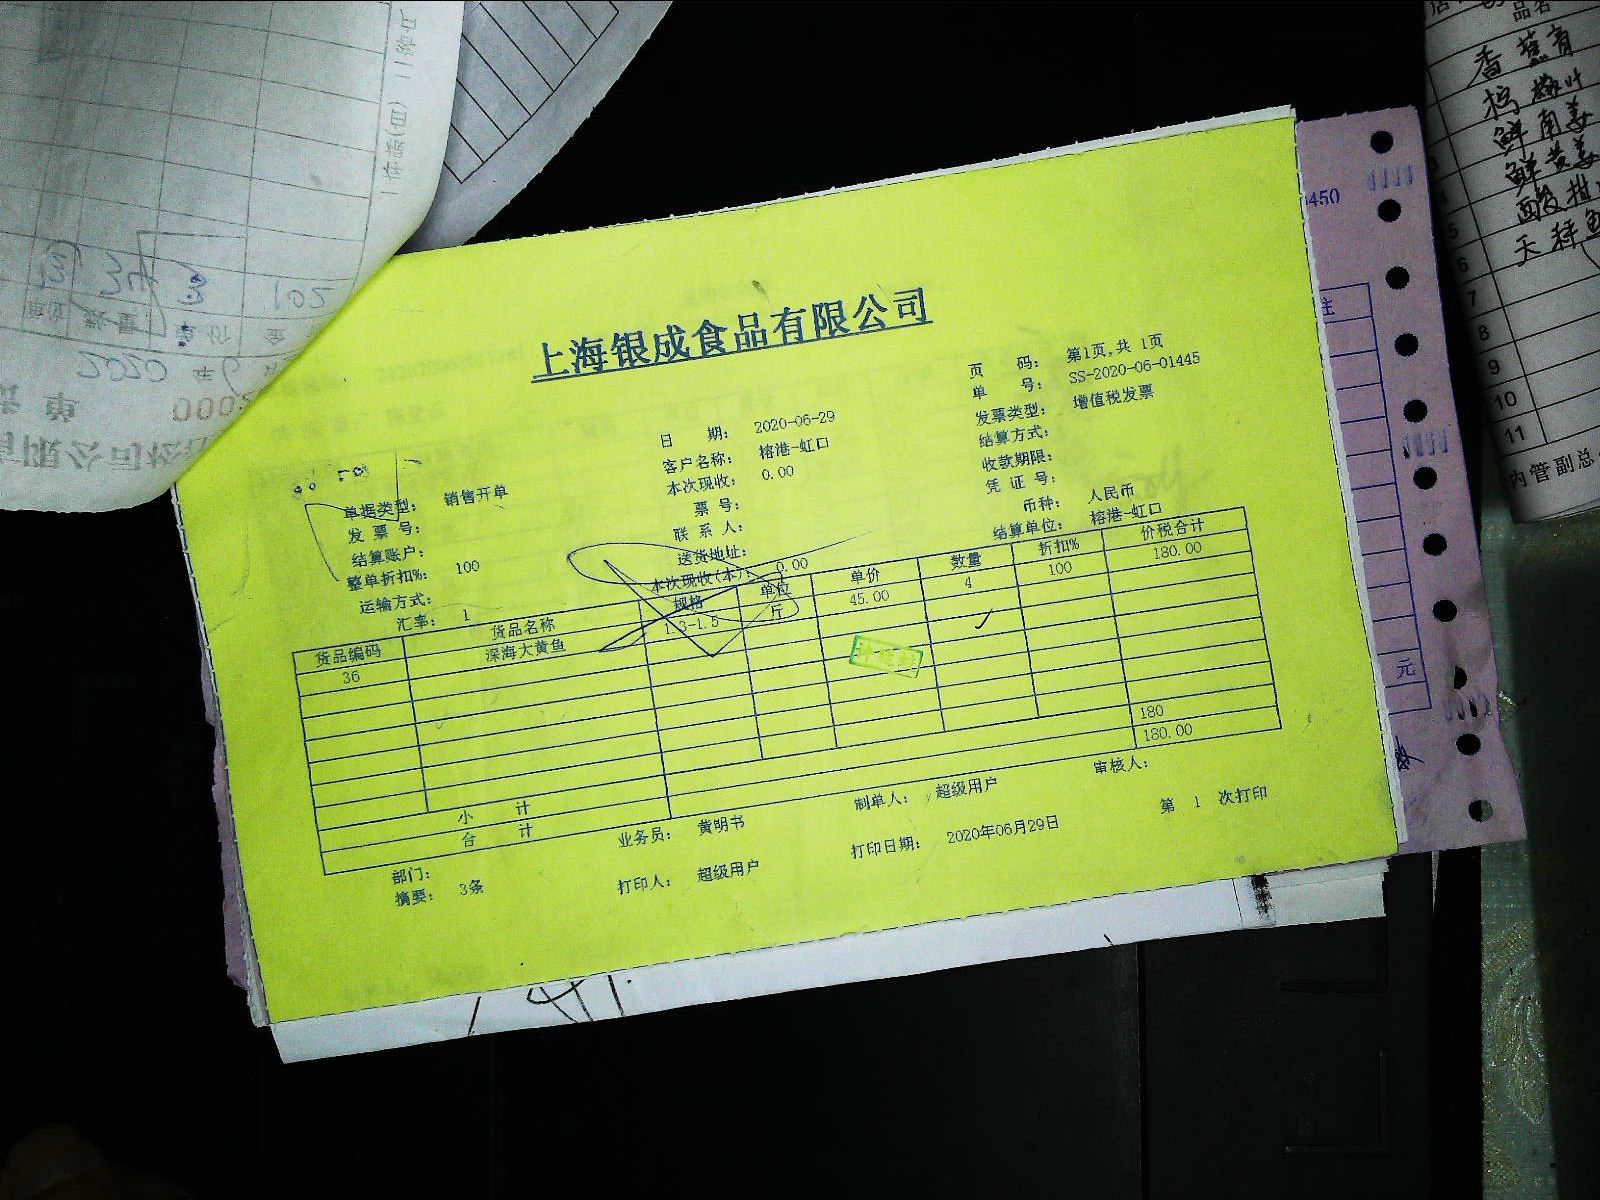 上海银成食品有限公司
页 码: 第1页,共 1页
单 号: SS-2020-06-01445
日 期: 2020-06-29
发票类型: 增值税发票
客户名称: 榕港-虹口
结算方式:
本次现收: 0.00
收款期限:
单据类型: 销售开单
票 号:
凭 证 号:
发 票 号:
联 系 人:
币种: 人民币
结算账户:
送货地址:
结算单位: 榕港-虹口
整单折扣%: 100
本次现收(本): 0.00
运输方式:
汇率: 1
货品编码 货品名称 规格 单位 单价 数量 折扣% 价税合计
36 深海大黄鱼 1.3-1.5 斤 45.00 4 100 180.00
小 计 180
合 计 180.00
部门: 业务员: 黄明书 制单人: 超级用户 审核人:
摘要: 3条 打印人: 超级用户 打印日期: 2020年06月29日 第 1 次打印
450
注
元
品名
香蕉
鲜南姜
鲜黄姜
6
7
8
9
10
11
内管副总
2020 年 6
单 价
102
000